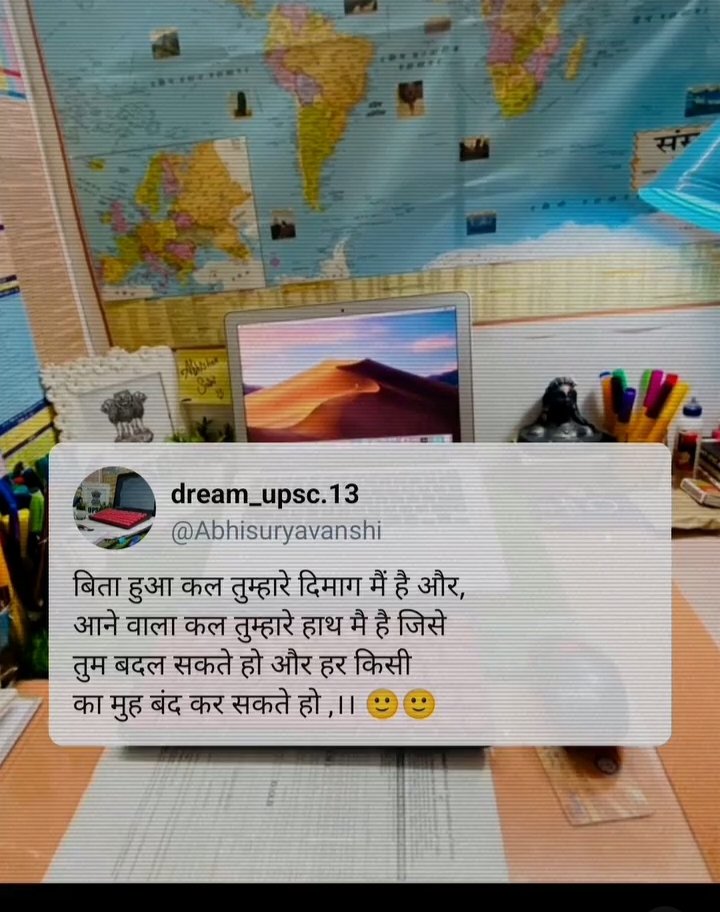 संस
Abhishek
dream_upsc.13
@Abhisuryavanshi
बिता हुआ कल तुम्हारे दिमाग मैं है और,
आने वाला कल तुम्हारे हाथ मै है जिसे
तुम बदल सकते हो और हर किसी
का मुह बंद कर सकते हो ,।। 🙂🙂